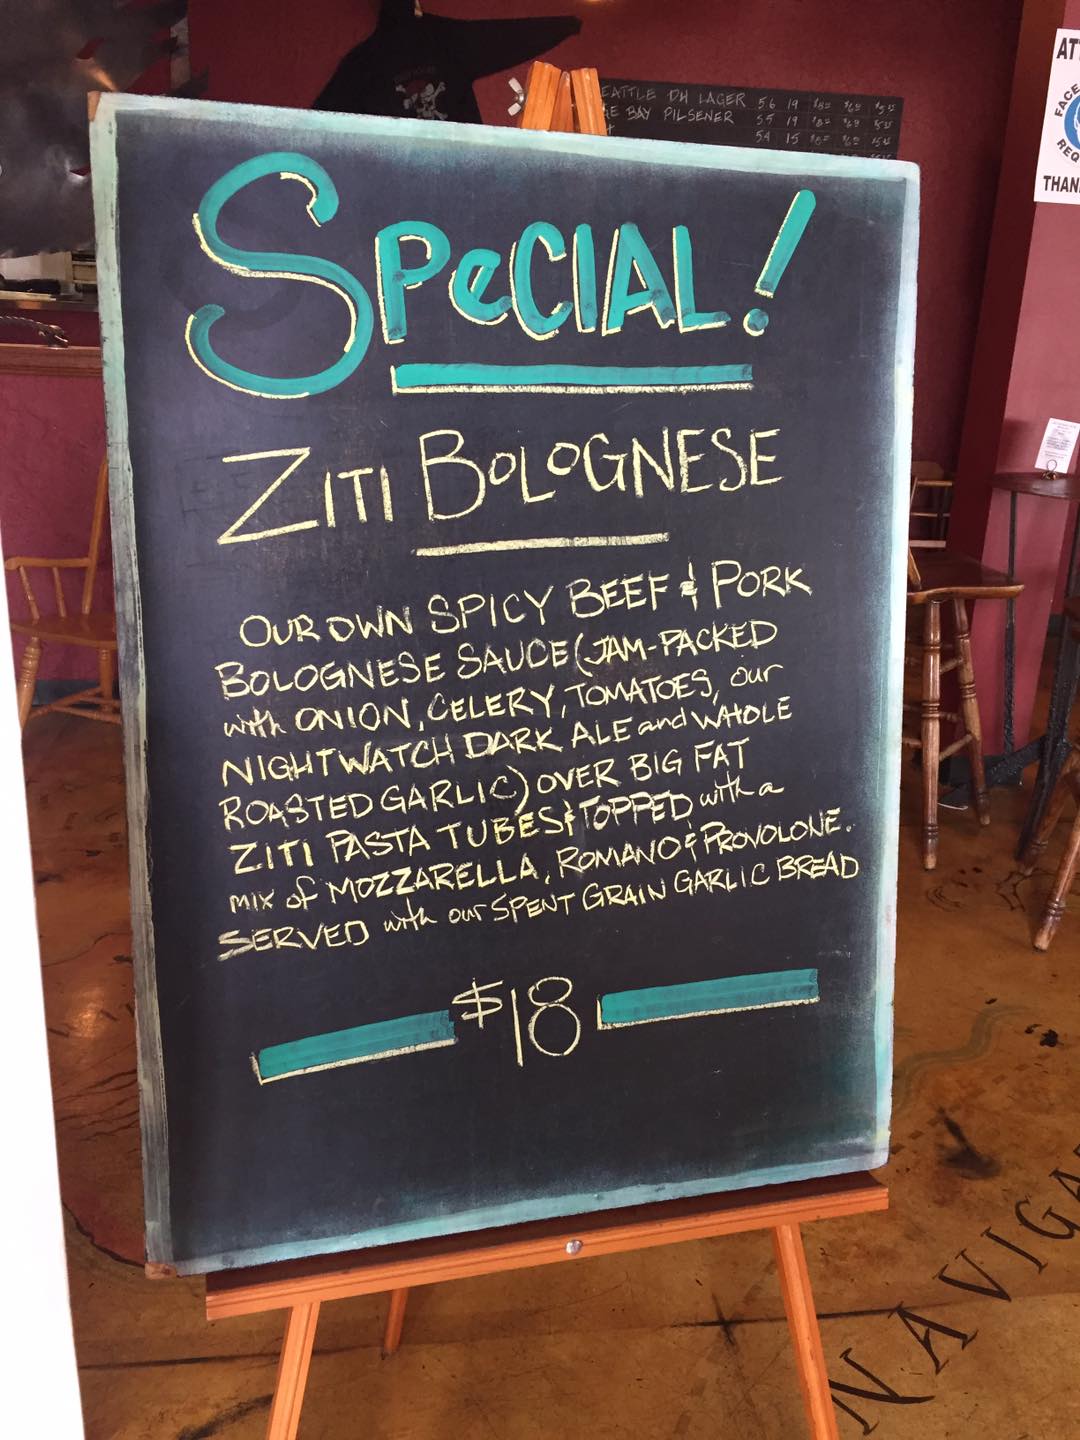 SEATTLE DH LAGER 5.6 19
BAY PILSENER 5.5 19
5.4 15
SPeCIAL!
ZITI BOLOGNESE
OUR OWN SPICY BEEF & PORK
BOLOGNESE SAUCE (JAM-PACKED
with ONION, CELERY, TOMATOES, our
NIGHTWATCH DARK ALE and WHOLE
ROASTED GARLIC) OVER BIG FAT
ZITI PASTA TUBES & TOPPED with a
mix of MOZZARELLA, ROMANO & PROVOLONE.
SERVED with our SPENT GRAIN GARLIC BREAD
$18
FACE
REQ
THAN
NAVIGA